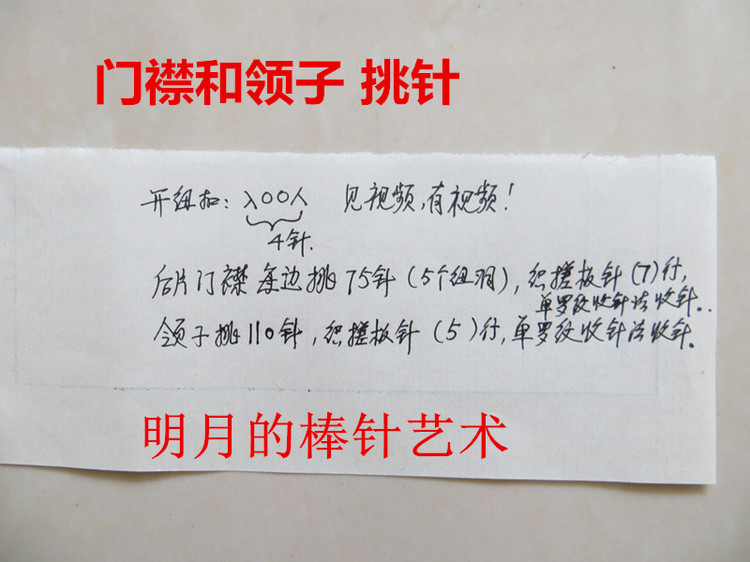 门襟和领子 挑针
开纽扣：入OO人 见视频,有视频!
4针.
后片门襟每边挑75针(5个纽洞),织搓板针(7)行,
单罗纹收针法收针..
领子挑110针,织搓板针(5)行,单罗纹收针法收针.
明月的棒针艺术